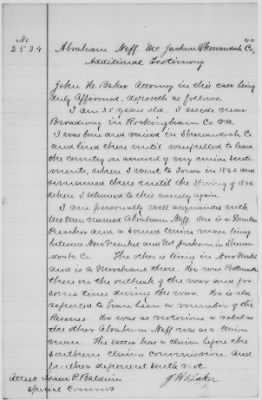 No
2534
Abraham Neff. Mt Jackson Shenandoah Co.
Va
Additional Testimony
John H. Baker Attorney in this case being
duly Affirmed, deposeth as follows
I am 35 years old, I reside near
Broadway in Rockingham Co Va
I was born and raised in Shenandoah Co
and lived there until compelled to leave
the country on account of my union senti-
ments, when I went to Iowa in 1862 and
remained there until the Spring of 1866
when I returned to this county again
I am personally well acquainted with
two Men named Abraham Neff. One is a
Preacher and a sound Union man living
between New Market and Mt Jackson in Shenan-
doah Co. The other is living in New Market
and is a Merchant there. He was Postmaster
there on the outbreak of the war and for
some time during the war. He is also
reputed to have been a member of the
Reserves. He was as notorious a rebel as
the other Abraham Neff was as a Union
man. The latter has a claim before the
Southern claims commission. And
further deponent saith not.
J H Baker
Attest Isaac P. Baldwin
Special Commr